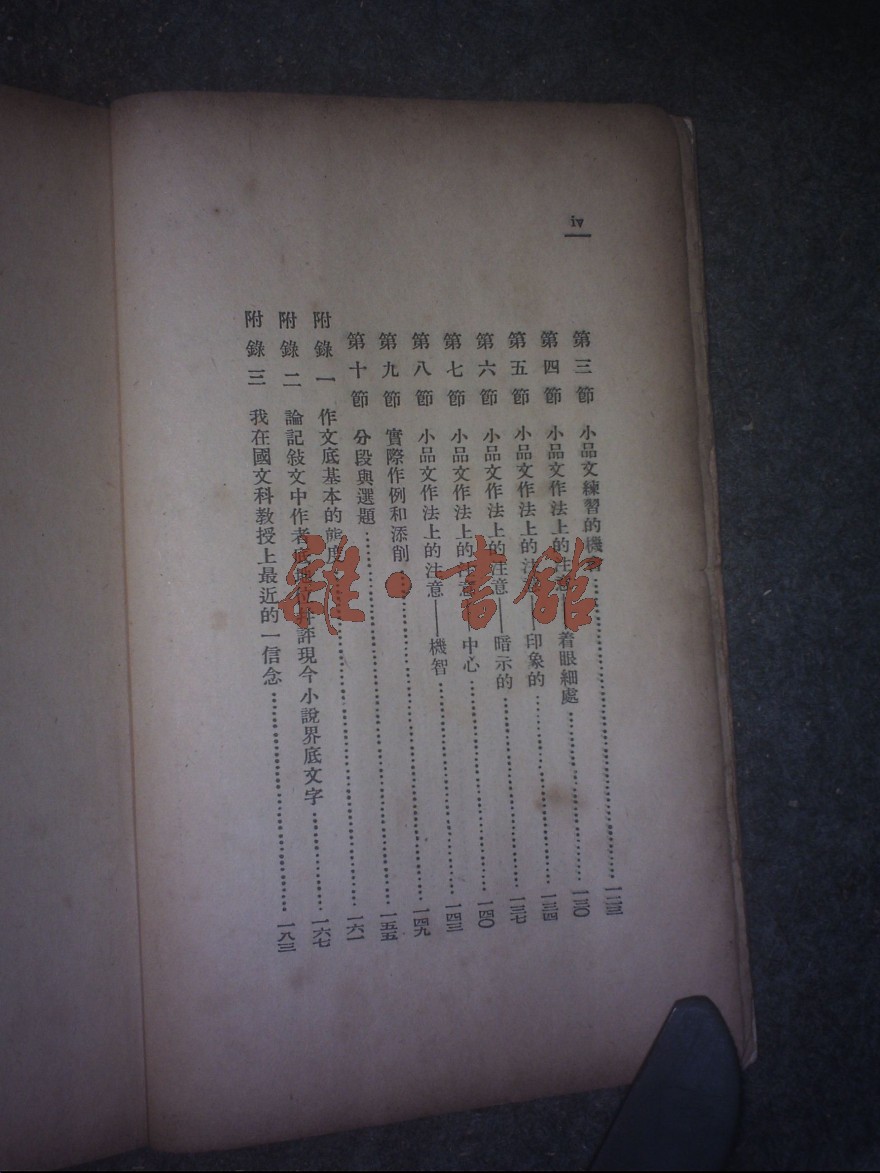 iv
第三節 小品文練習的機會……一二三
第四節 小品文作法上的注意——着眼細處……一三〇
第五節 小品文作法上的注意——印象的……一三四
第六節 小品文作法上的注意——暗示的……一三七
第七節 小品文作法上的注意——中心……一四〇
第八節 小品文作法上的注意——機智……一四三
第九節 實際作例和添削……一四九
第十節 分段與選題……一五五
附錄一 作文底基本的態度……一六一
附錄二 論記敍文中作者底地位並評現今小說界底文字……一六七
附錄三 我在國文科教授上最近的一信念……一八三
雜·書館